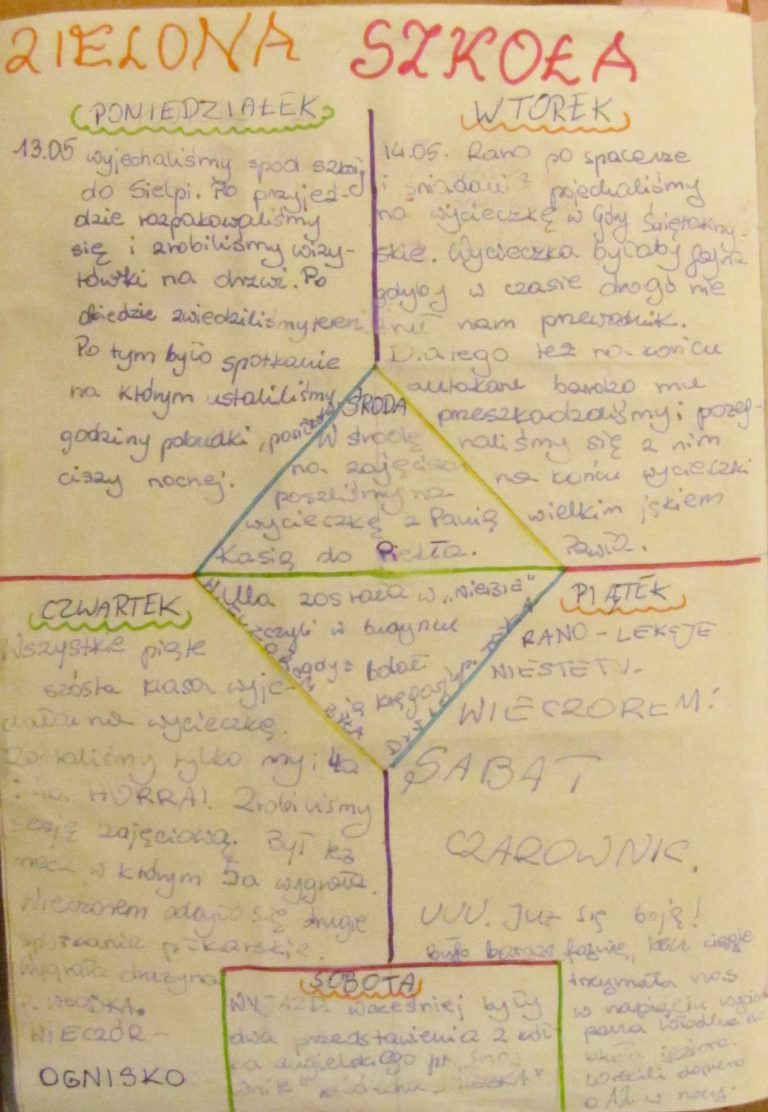 ZIELONA SZKOŁA
PONIEDZIAŁEK
13.05 wyjechaliśmy spod szkoły
do Sielpi. Po przyjeź-
dzie rozpakowaliśmy
się i zrobiliśmy wizy-
tówki na drzwi. Po
obiedzie zwiedziliśmy teren.
Po tym było spotkanie
na którym ustaliliśmy
godziny pobudki, posiłków
ciszy nocnej.
WTOREK
14.05. Rano po spacerze
i śniadaniu pojechaliśmy
na wycieczkę w Góry Świętokrzy-
skie. Wycieczka byłaby fajna
gdyby w czasie drogi nie
truł nam przewodnik.
Dlatego też na końcu
autokaru bardzo mu
przeszkadzaliśmy i pożeg-
naliśmy się z nim
na końcu wycieczki
wielkim jękiem
ŚRODA
W środę
na zajęciach
poszliśmy na
wycieczkę z Panią
Kasią do Piekła.
została w „Niebie”
czyli w budynku
gdyż bolał
ją kręgosłup.
CZWARTEK
Wszystkie piąte
szósta klasa wyje-
chała na wycieczkę.
Zostaliśmy tylko my i 4a
HURRA! Zrobiliśmy
sesję zajęciową. Był też
mecz w którym 5a wygrała.
Wieczorem odbyło się drugie
spotkanie piłkarskie.
Wygrała drużyna
WIECZÓR-
OGNISKO
PIĄTEK
RANO - LEKCJE
NIESTETY.
WIECZOREM:
SABAT
CZAROWNIC.
UUU. Już się boję!
Było bardzo fajnie, ciągle
trzymała nas
w napięciu
pana
Wróciliśmy dopiero
o 12 w nocy.
SOBOTA
WYJAZD. Wcześniej były
dwa przedstawienia z
angielskiego